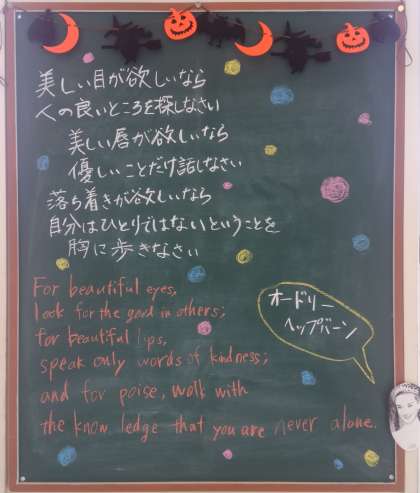 美しい目が欲しいなら
人の良いところを探しなさい
美しい唇が欲しいなら
優しいことだけ話しなさい
落ち着きが欲しいなら
自分はひとりではないということを
胸に歩きなさい
For beautiful eyes,
look for the good in others;
for beautiful lips,
speak only words of kindness;
and for poise, walk with
the know ledge that you are never alone.
オードリー
ヘップバーン